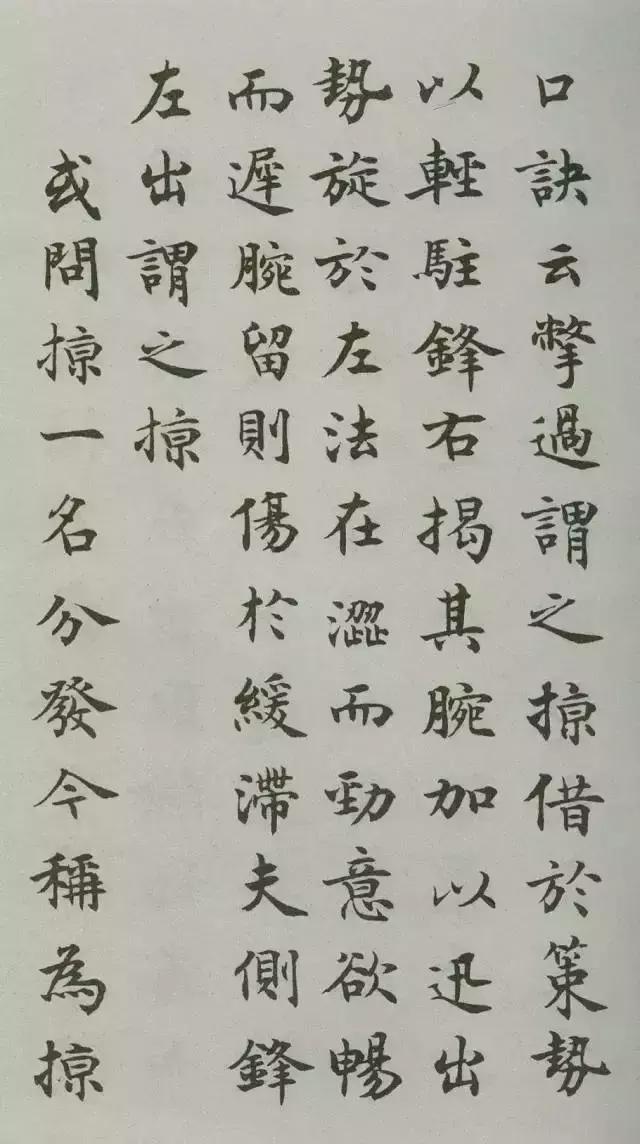 口訣云撆過謂之掠借於策勢
以輕駐鋒右揭其腕加以迅出
勢旋於左法在澀而勁意欲暢
而遲腕留則傷於緩滯夫側鋒
左出謂之掠
或問掠一名分發今稱為掠